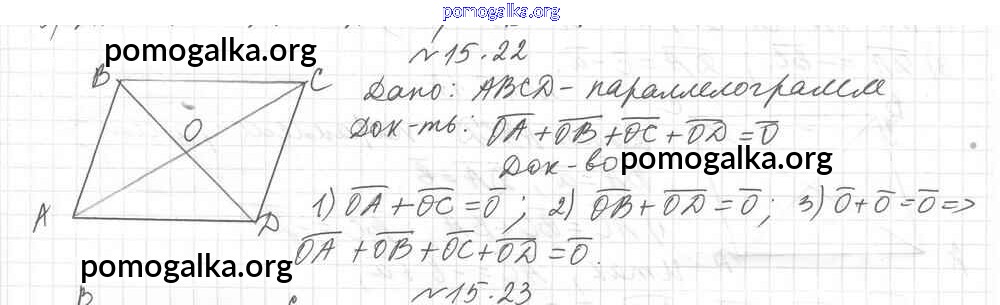 pomogalka.org
pomogalka.org
№15.22
B C
Дано: ABCD - параллелограмм
O
Док-ть: OA + OB + OC + OD = O
Док-во pomogalka.org
A D
1) OA + OC = O; 2) OB + OD = O; 3) O + O = O =>
OA + OB + OC + OD = O.
pomogalka.org
№15.23